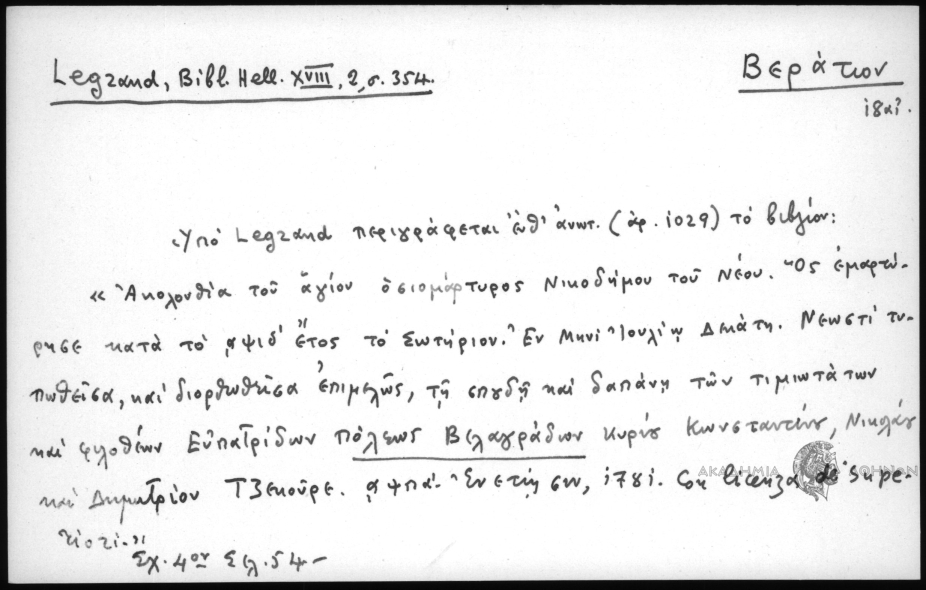 Legrand, Bibl. Hell. XVIII, 2, σ. 354.
Βεράτιον
ιδαί.
Ὑπό Legrand περιγράφεται ἐνθ' ἀνωτ. (ἀρ. 1029) τό βιβλίον:
« Ἀκολουθία τοῦ ἁγίου ὁσιομάρτυρος Νικοδήμου τοῦ Νέου. Ὃς ἐμαρτύ-
ρησε κατὰ τὸ ͵αψιδ' ἔτος τὸ Σωτήριον. Ἐν Μηνί Ἰουλίῳ Δεκάτῃ. Νεωστί τυ-
πωθεῖσα, καί διορθωθεῖσα ἐπιμελῶς, τῇ σπουδῇ καί δαπάνῃ τῶν τιμιωτάτων
καί φιλοθέων Εὐπατρίδων πόλεως Βελαγράδων κυρίου Κωνσταντίνου, Νικολάου
καί Δημητρίου Τζεκούρε. ͵αψπα'. Ἐνετίῃσιν, 1781. Con licenza de' Supe-
riori.»
Σχ. 4ον Σελ. 54-
ΑΚΑΔΗΜΙΑ ΑΘΗΝΩΝ